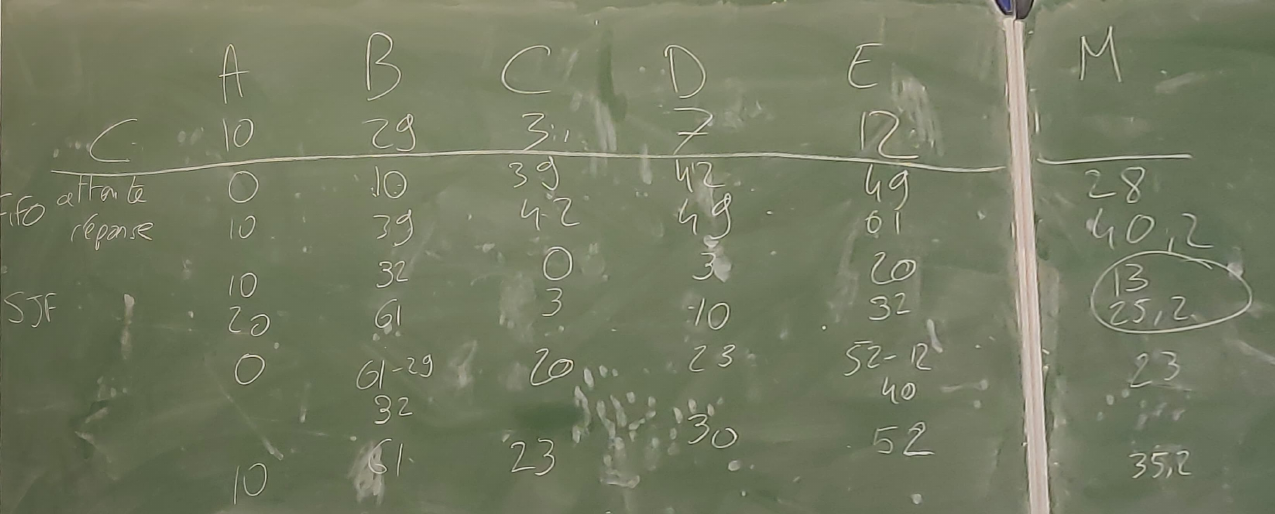 A B C D E M
C 10 29 3 7 12
FIFO attente 0 10 39 42 49 28
réponse 10 39 42 49 61 40,2
10 32 0 3 20 13
SJF 20 61 3 10 32 25,2
0 61-29 20 23 52-12 23
32 40
10 61 23 30 52 35,2